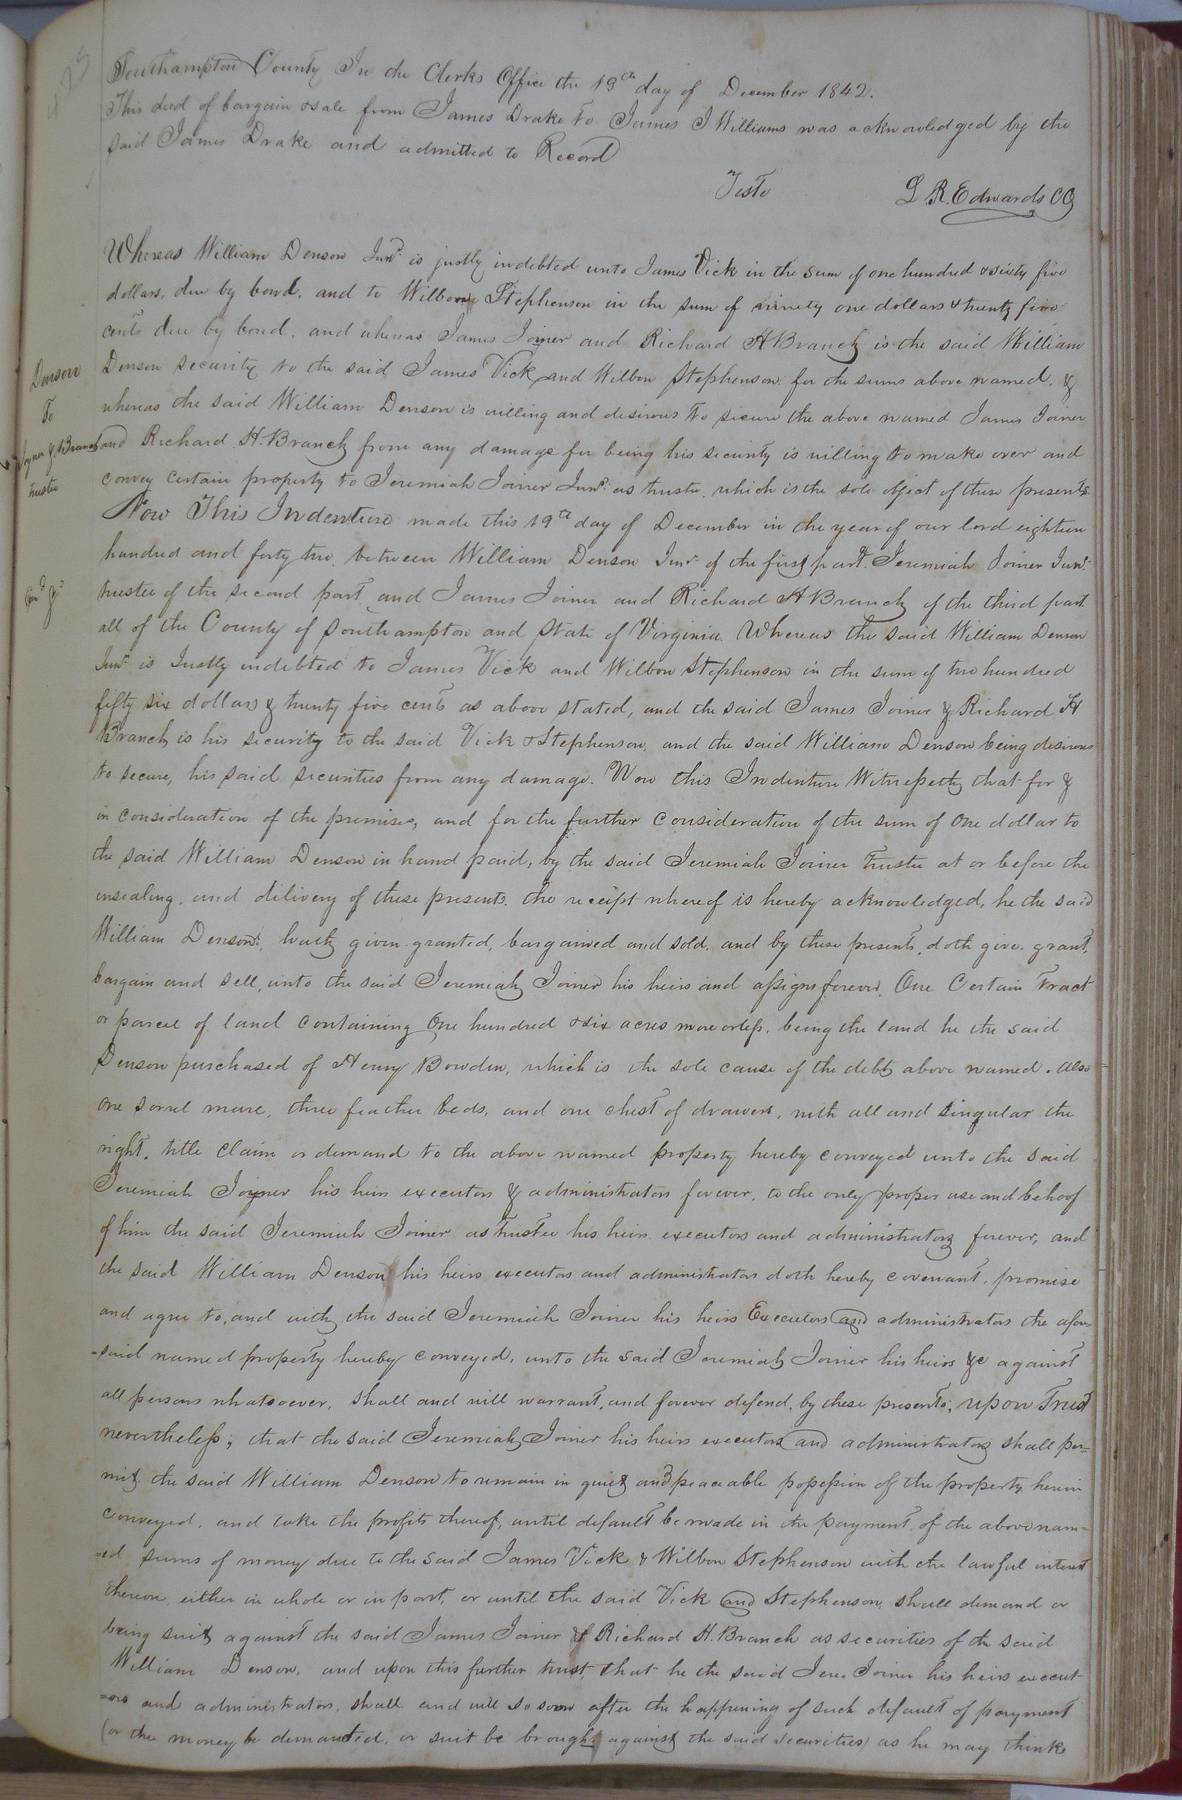 Southampton County In the Clerks Office the 19th day of December 1842.
This deed of bargain & sale from James Drake to James J Williams was acknowledged by the
said James Drake and admitted to Record
Teste L R. Edwards CC
Whereas William Denson Junr. is justly indebted unto James Vick in the sum of one hundred & sixty five
dollars, due by bond, and to Wilbon Stephenson in the sum of ninety one dollars & twenty five
cents due by bond. and whereas James Joyner and Richard H Branch is the said William
Denson security to the said James Vick and Wilbon Stephenson for the sums above named, &
whereas the said William Denson is willing and desirous to secure the above named James Joiner
and Richard H. Branch from any damage for being his security is willing to make over and
convey certain property to Jeremiah Joiner Junr. as trustee, which is the sole object of these presents
Denson
To
Joyner & Branch
trustee
Now This Indenture made this 19th day of December in the year of our lord eighteen
hundred and forty two. between William Denson Junr. of the first part. Jeremiah Joiner Junr.
trustee of the second part and James Joiner and Richard H Branch of the third part
all of the County of Southampton and State of Virginia. Whereas the said William Denson
Junr. is Justly indebted to James Vick and Wilbon Stephenson in the sum of two hundred
fifty six dollars & twenty five cents as above stated, and the said James Joiner & Richard H
Branch is his security to the said Vick & Stephenson, and the said William Denson being desirous
to secure, his said securities from any damage. Now this Indenture Witnesseth that for &
in consideration of the premises, and for the further consideration of the sum of one dollar to
the said William Denson in hand paid, by the said Jeremiah Joiner trustee at or before the
ensealing. and delivery of these presents. the receipt whereof is hereby acknowledged, he the said
William Denson, hath given granted, bargained and sold. and by these presents, doth give. grant,
bargain and sell, unto the said Jeremiah Joiner his heirs and assigns forever. One Certain tract
or parcel of land containing One hundred & six acres more or less, being the land he the said
Denson purchased of Henry Bowden, which is the sole cause of the debts above named. also
one sorrel mare, three feather beds, and one chest of drawers, with all and singular the
right, title claim or demand to the above named property hereby conveyed unto the said
Jeremiah Joyner his heirs executors & administrators forever, to the only proper use and behoof
of him the said Jeremiah Joiner as trustee his heirs executors and administrators forever, and
the said William Denson his heirs executors and administrators doth hereby covenant. promise
and agree to, and with the said Jeremiah Joiner his heirs Executors and administrators the afore
-said named property hereby conveyed, unto the said Jeremiah Joiner his heirs &c against
all persons whatsoever, shall and will warrant, and forever defend, by these presents; upon trust
nevertheless, that the said Jeremiah Joiner his heirs executors and administrators shall per-
mit the said William Denson to remain in quiet and peaceable possession of the property herein
conveyed, and take the profits thereof, until default be made in the payment of the above nam-
-ed sums of money due to the said James Vick & Wilbon Stephenson with the lawful interest
thereon, either in whole or in part, or until the said Vick and Stephenson, shall demand or
bring suit against the said James Joiner & Richard H. Branch as securities of the said
William Denson, and upon this further trust, that he the said Jere. Joiner his heirs execut-
-ors and administrators, shall and will so soon after the happening of such default of payment
(or the money be demanded, or suit be brought against the said securities) as he may think